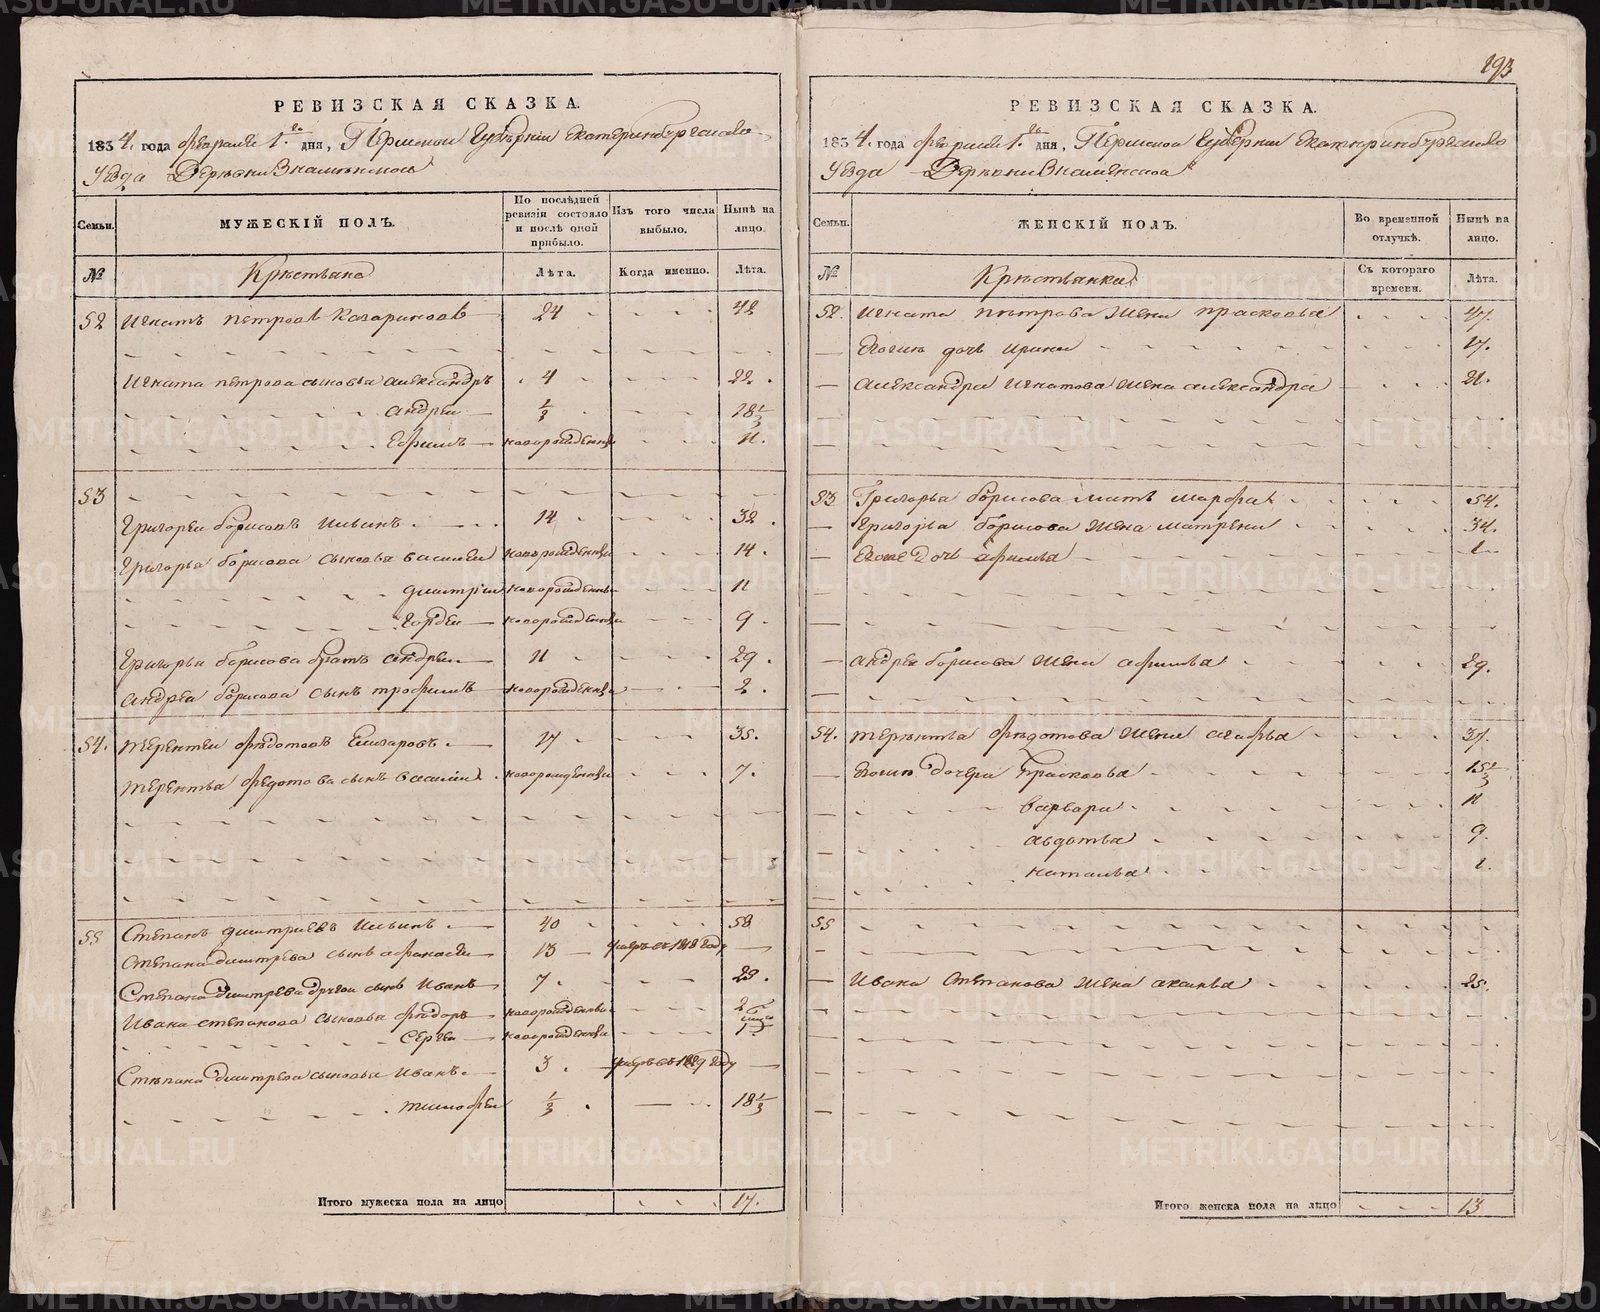 193
РЕВИЗСКАЯ СКАЗКА.
1834. года февраля 1го дня, Пермской Губернии Екатеринбургскаго
Уезда Деревни Знаменской
Семьи.
МУЖЕСКІЙ ПОЛЪ.
По послѣдней ревизіи состояло и послѣ оной прибыло.
Изъ того числа выбыло.
Нынѣ на лицо.
№
Крестьяне
Лѣта.
Когда именно.
Лѣта.
52 Игнатъ петровъ Казариновъ 24 42
Игната петрова сыновья александръ 4 22.
андрей 1/3 18 1/3
Ефимъ новорожденны 11.
53
Григорей борисовъ Ильинъ 14 32.
Григорья борисова сыновья василей новорожденны 14.
дмитрій новорожденны 11
гордей новорожденны 9.
Григорья борисова братъ андрей 11 29.
андрея борисова сынъ трофимъ новорожденны 2.
54. терентей федотовъ 17 35.
терентья федотова сынъ василій новорожденны 7.
55 Степанъ дмитриевъ Ильинъ 40 58
Степана дмитрева сынъ афонасей 13 умеръ въ 1818 году
Степана дмитрева другой сынъ Иванъ 7 25.
Ивана степанова сыновья федоръ новорожденны 2
Сергей новорожденны
Степана дмитрева сыновья Иванъ 3. умеръ въ 1829 году
тимофей 1/3 18 1/3
Итого мужеска пола на лицо 17.
РЕВИЗСКАЯ СКАЗКА.
1834. года февраля 1го дня, Пермской Губернии Екатеринбургскаго
Уезда Деревни Знаменской
Семьи.
ЖЕНСКІЙ ПОЛЪ.
Во временной отлучкѣ.
Нынѣ на лицо.
№
Крестьянки
Съ котораго времени.
Лѣта.
52. Игната петрова жена прасковья 47.
Егоже дочь ирина 17.
александра игнатова жена александра 21.
53 Григорья борисова мать марфа 54.
Григорья борисова жена матрена 34.
Егоже дочь афимья 1
андрея борисова жена афимья 29.
54. терентья федотова жена агафья 37.
Егоже дочери Прасковья 15 1/3
варвара 11
авдотья 9.
наталья 1.
55
Ивана Степанова жена акилина 25.
Итого женска пола на лицо 13
METRIKI.GASO-URAL.RU